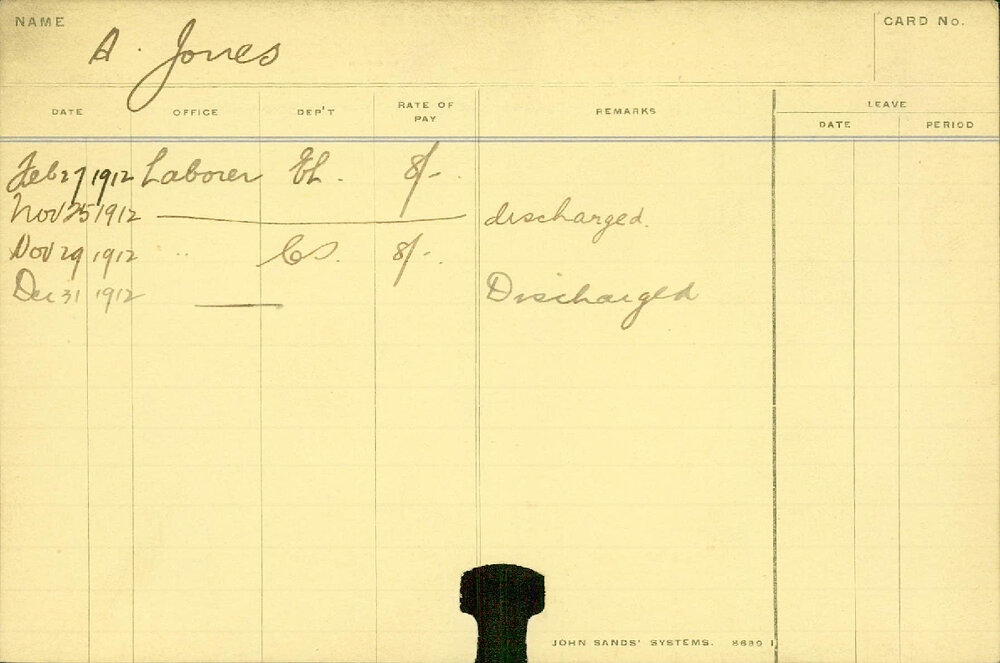 NAME A. Jones CARD No.
DATE OFFICE DEP'T RATE OF PAY REMARKS LEAVE
DATE PERIOD
Feb 27 1912 Laborer EL. 8/-.
Nov 25 1912 discharged.
Nov 29 1912 " CS. 8/-.
Dec 31 1912 Discharged
JOHN SANDS' SYSTEMS. 8689 1